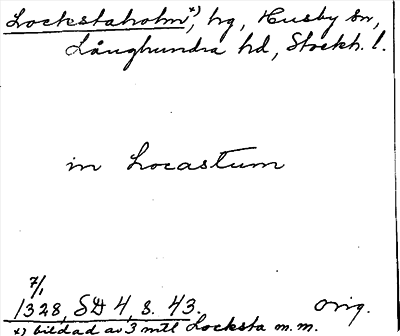 Lockstaholm*), hg, Husby sn,
Långhundra hd, Stockh. l.
in Locastum
7/1
1328, SD 4, s. 43. Orig.
*) bildad av 3 mtl Locksta m.m.